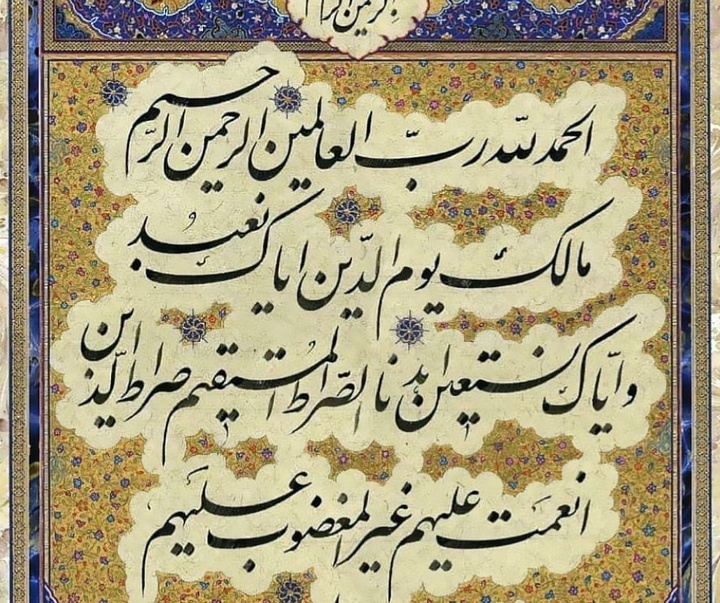 الحمد لله ربّ العالمین الرحمن الرّحیم
مالک یوم الدّین ایاک نعبد
و ایّاک نستعین اهدنا الصّراط المستقیم صراط الّذین
انعمت علیهم غیر المغضوب علیهم